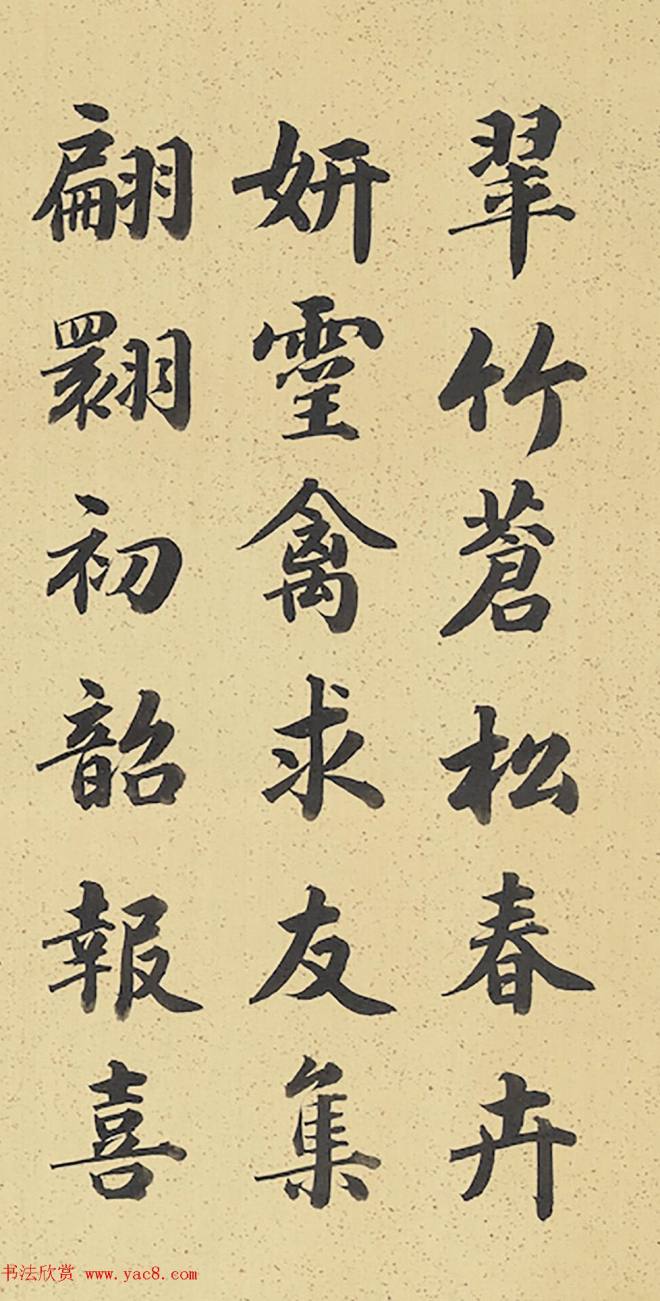 翠竹蒼松春卉
妍靈禽求友集
翩翾初韶報喜
书法欣赏 www.yac8.com